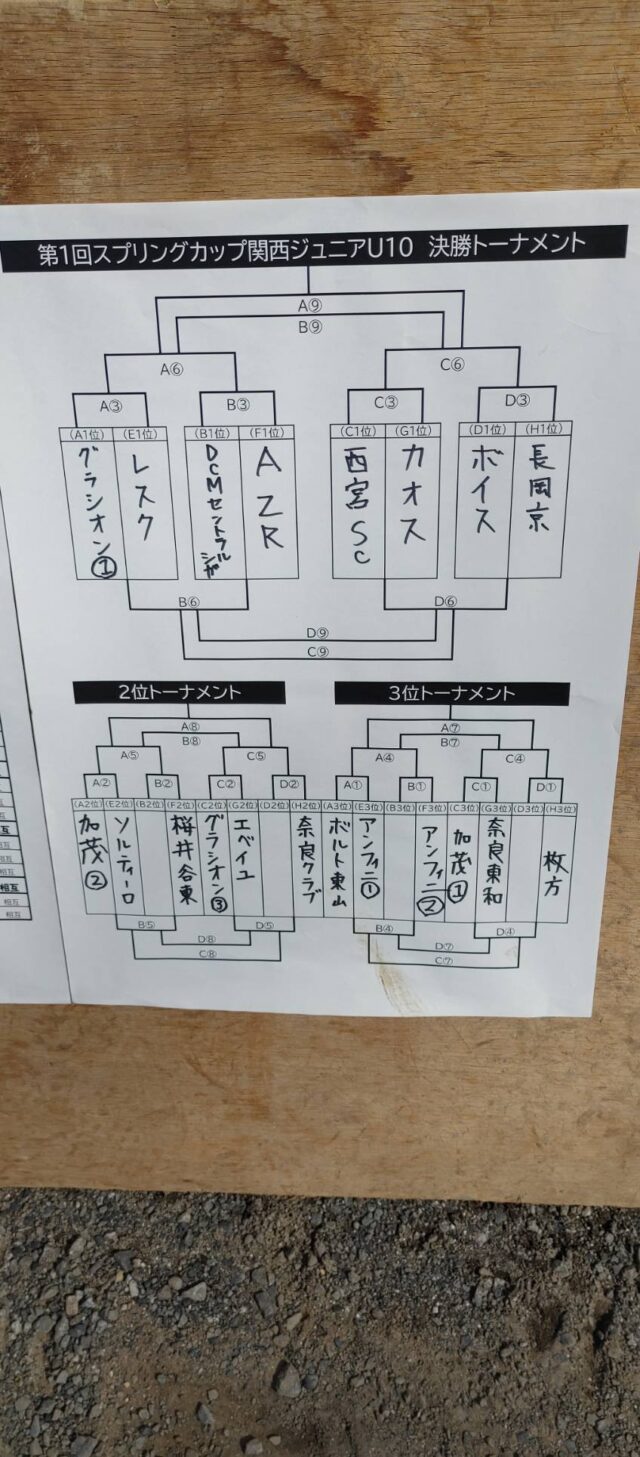 第1回スプリングカップ関西ジュニアU10 決勝トーナメント
A⑨
B⑨
A⑥
C⑥
A③
B③
C③
D③
(A1位)
(E1位)
(B1位)
(F1位)
(C1位)
(G1位)
(D1位)
(H1位)
グラシオン①
レスク
DCMセントラルシガ
AZR
西宮SC
カオス
ボイス
長岡京
B⑥
D⑥
D⑨
C⑨
2位トーナメント
A⑧
B⑧
A⑤
C⑤
A②
B②
C②
D②
(A2位)
(E2位)
(B2位)
(F2位)
(C2位)
(G2位)
(D2位)
(H2位)
加茂②
ソルティーロ
桜井谷東
グラシオン③
エベイユ
奈良クラブ
B⑤
D⑤
D⑧
C⑧
3位トーナメント
A⑦
B⑦
A④
C④
A①
B①
C①
D①
(A3位)
(E3位)
(B3位)
(F3位)
(C3位)
(G3位)
(D3位)
(H3位)
ボルト東山
アンフィニ①
アンフィニ②
加茂①
奈良東和
枚方
B④
D④
D⑦
C⑦
相互
相互
相互
相互
相互